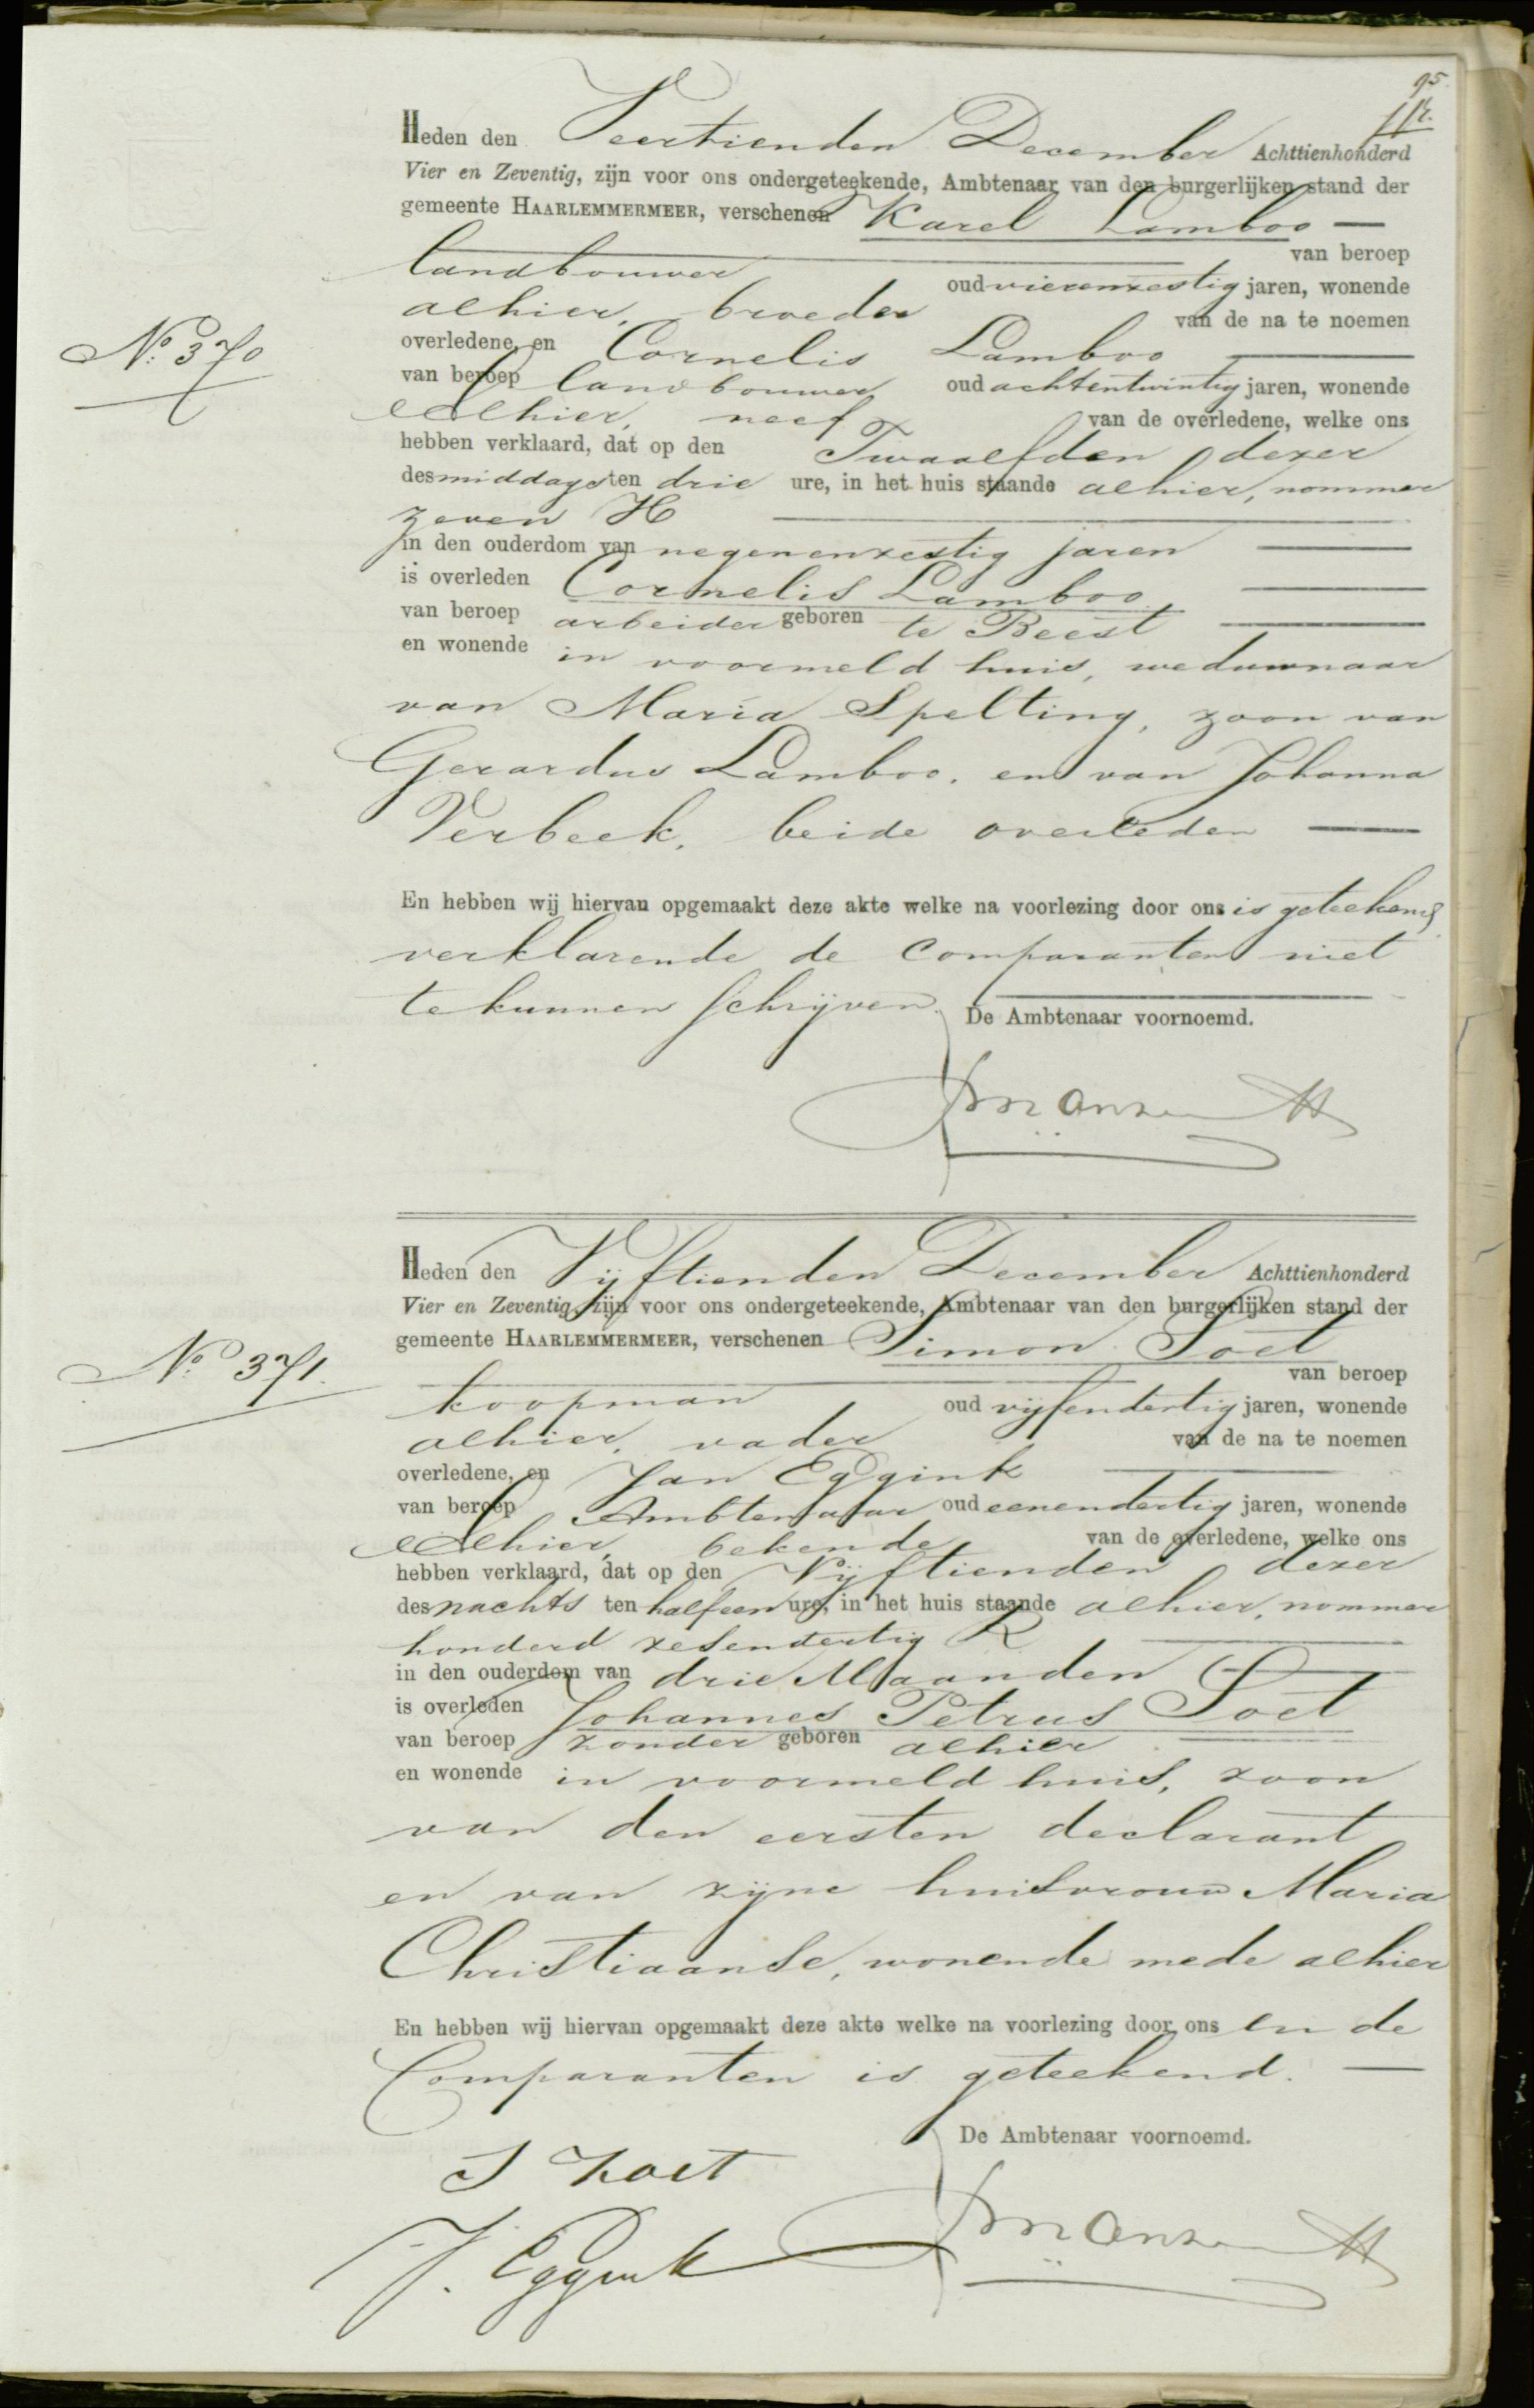 95.
Heden den Veertienden December Achttienhonderd
Vier en Zeventig, zijn voor ons ondergeteekende, Ambtenaar van den burgerlijken stand der
gemeente HAARLEMMERMEER, verschenen Karel Lamboo —
van beroep
landbouwer oud vierenzestig jaren, wonende
alhier, broeder van de na te noemen
overledene, en Cornelis Lamboo
No. 370
van beroep landbouwer oud achtentwintig jaren, wonende
alhier, neef van de overledene, welke ons
hebben verklaard, dat op den Twaalfden dezer
des middags ten drie ure, in het huis staande alhier, nommer
zeven H
in den ouderdom van negenenzestig jaren
is overleden Cornelis Lamboo,
van beroep arbeider geboren te Beest
en wonende in voormeld huis, weduwnaar
van Maria Spelting, zoon van
Gerardus Lamboo, en van Johanna
Verbeek, beide overleden —
En hebben wij hiervan opgemaakt deze akte welke na voorlezing door ons is geteekend
verklarende de Comparanten niet
te kunnen schrijven.
De Ambtenaar voornoemd.
Heden den Vijftienden December Achttienhonderd
Vier en Zeventig, zijn voor ons ondergeteekende, Ambtenaar van den burgerlijken stand der
gemeente HAARLEMMERMEER, verschenen Simon Soet
No. 371.
van beroep
koopman oud vijfendertig jaren, wonende
alhier, vader van de na te noemen
overledene, en Jan Eggink
van beroep Ambtenaar oud eenendertig jaren, wonende
alhier, bekende van de overledene, welke ons
hebben verklaard, dat op den Vijftienden dezer
des nachts ten half een ure, in het huis staande alhier, nommer
honderd zesendertig R
in den ouderdom van drie Maanden
is overleden Johannes Petrus Soet
van beroep zonder geboren alhier
en wonende in voormeld huis, zoon
van den eersten declarant
en van zijne huisvrouw Maria
Christiaanse, wonende mede alhier
En hebben wij hiervan opgemaakt deze akte welke na voorlezing door ons en de
Comparanten is geteekend. —
De Ambtenaar voornoemd.
S Zoet
J. Eggink